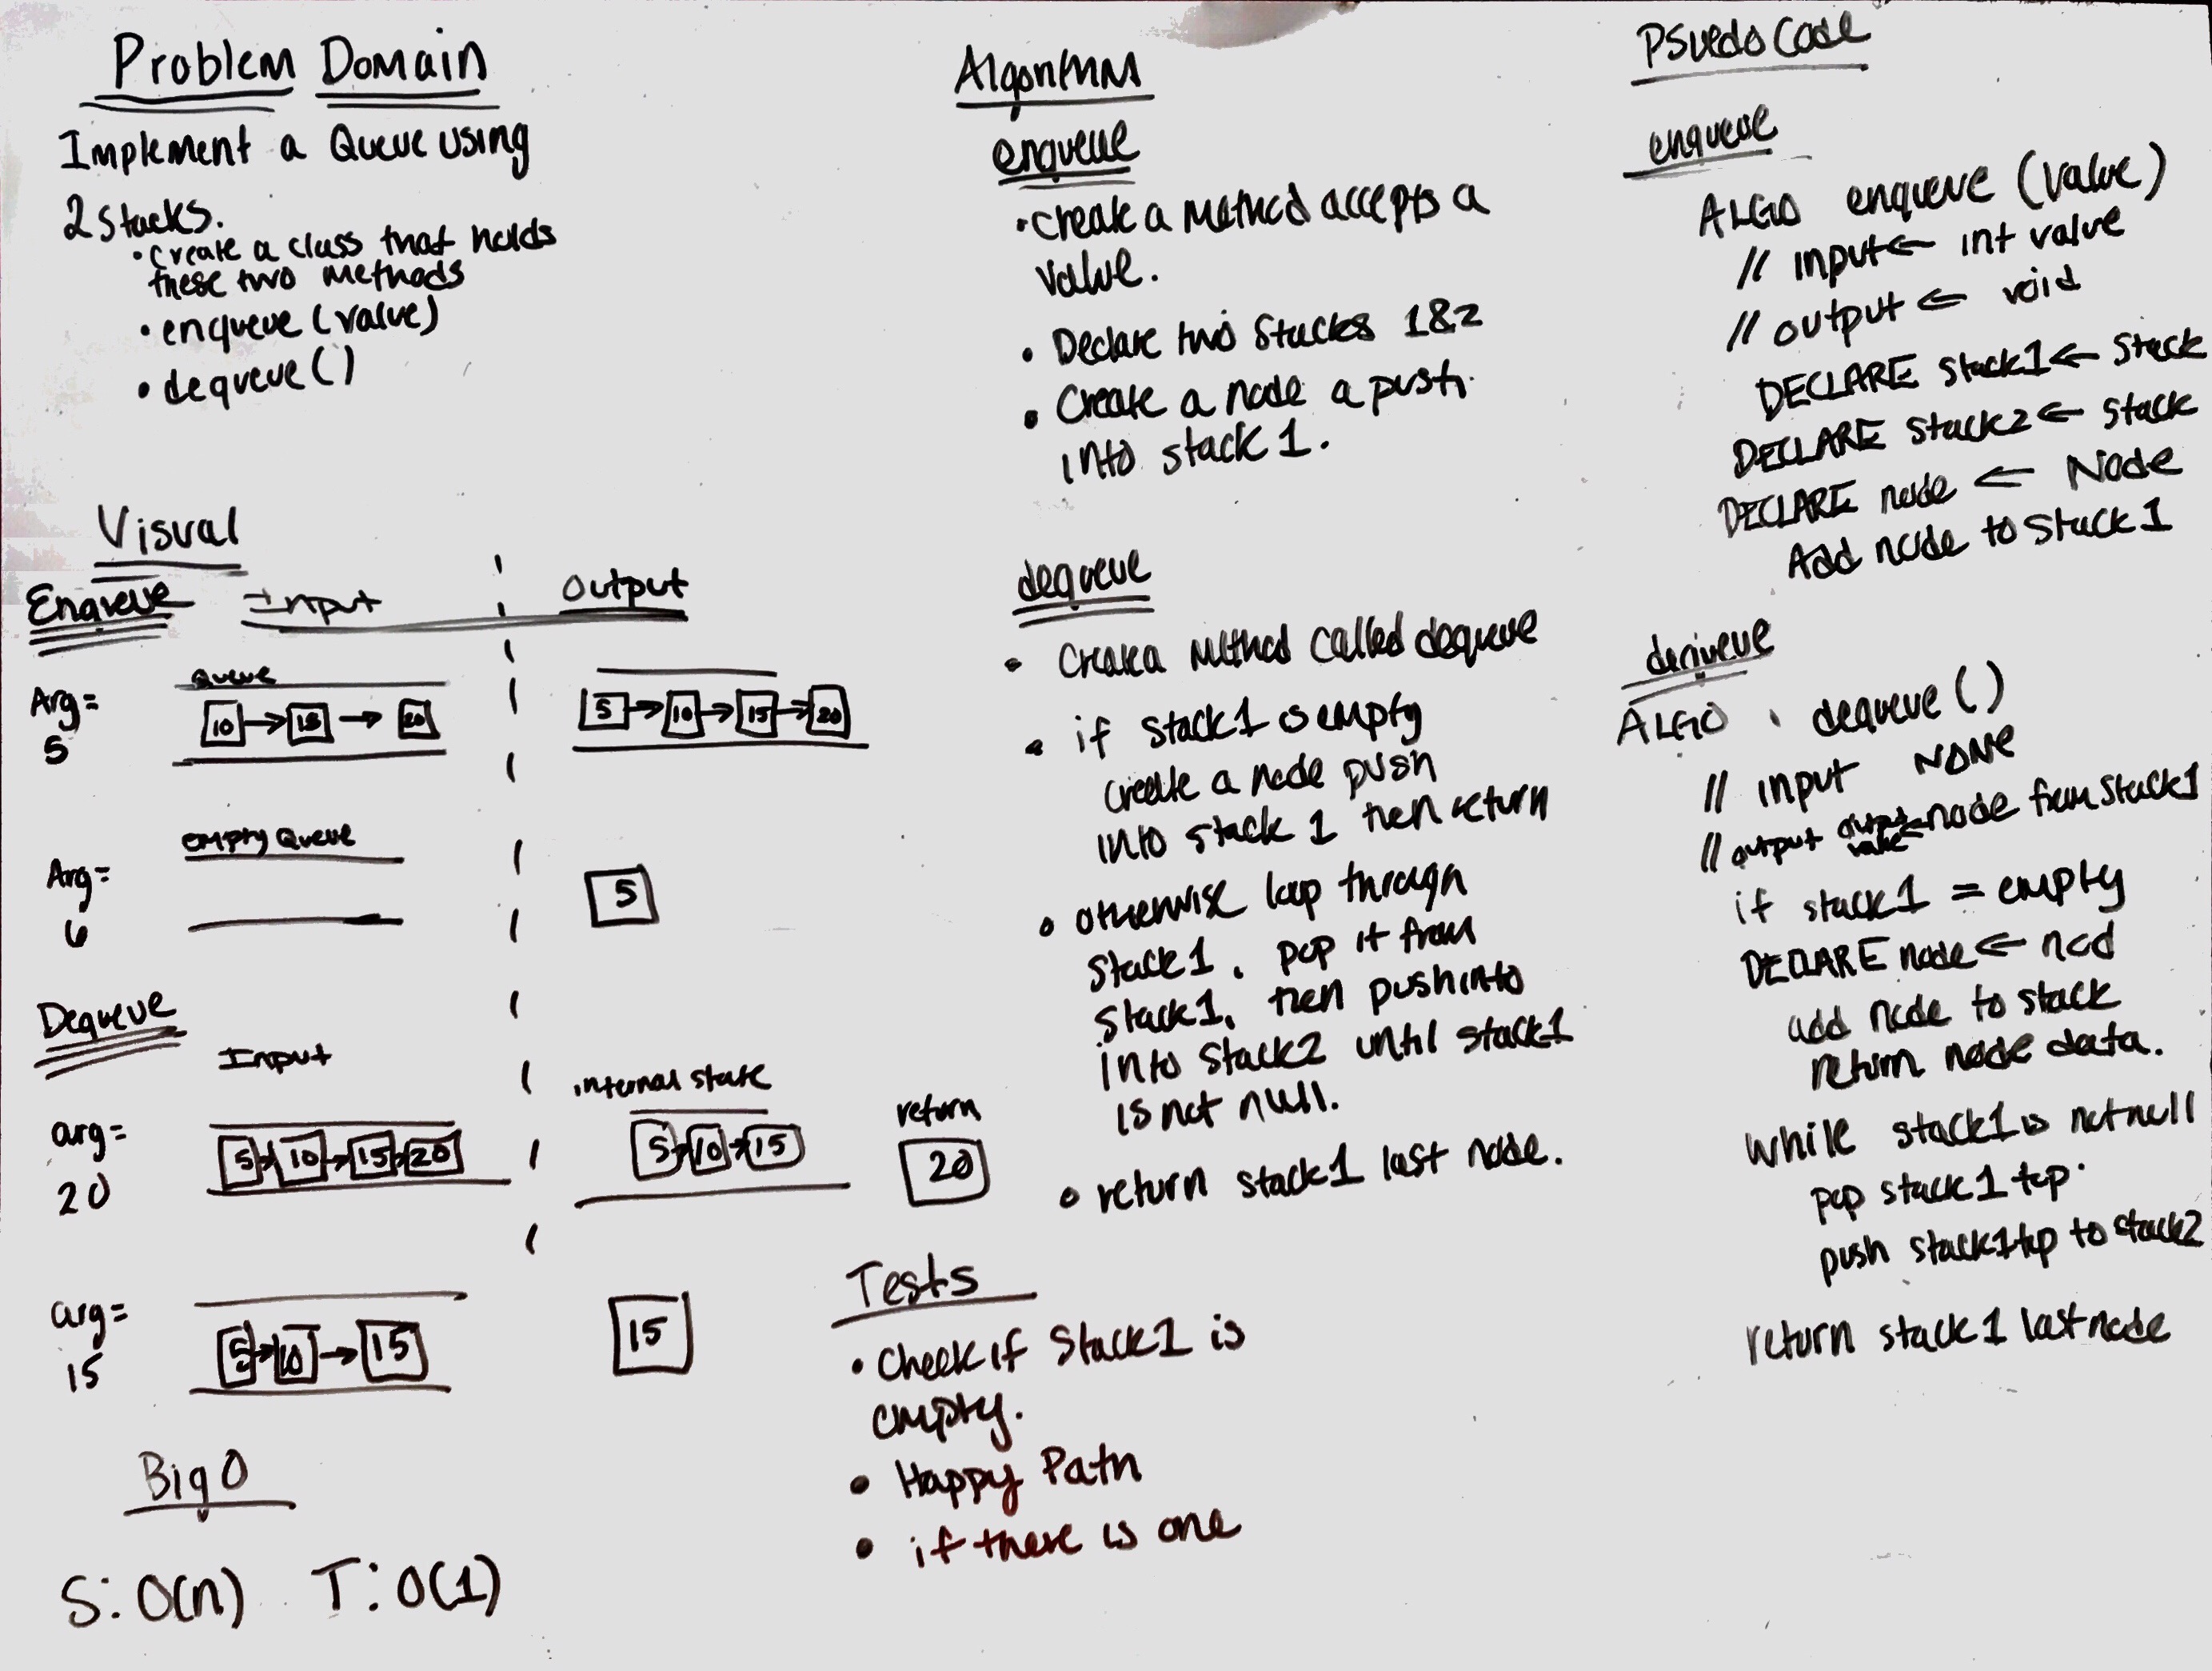 Problem Domain
Implement a Queue using
2 Stacks.
• Create a class that holds
these two methods
• enqueue (value)
• dequeue ()
Visual
Enqueue Input Output
Queue
Arg=
5
10 → 15 → 20
5 → 10 → 15 → 20
empty Queue
Arg=
6
5
Dequeue
Input
internal state
return
arg=
20
5 → 10 → 15 → 20
5 → 10 → 15
20
arg=
15
5 → 10 → 15
15
Big O
S: O(n) T: O(1)
Algorithm
enqueue
• Create a method accepts a
value.
• Declare two Stacks 1&2
• Create a node a push
into stack 1.
dequeue
• Create a method called dequeue
• if stack1 is empty
create a node push
into stack 1 then return
• otherwise loop through
stack1, pop it from
stack1, then push into
into stack2 until stack1
is not null.
• return stack1 last node.
Tests
• Check if Stack1 is
empty.
• Happy Path
• if there is one
Psuedo Code
enqueue
ALGO enqueue (value)
// input ← int value
// output ← void
DECLARE stack1 ← Stack
DECLARE stack2 ← stack
DECLARE node ← Node
Add node to Stack 1
dequeue
ALGO dequeue ()
// input NONE
// output output value ← node from Stack1
if stack1 = empty
DECLARE node ← nod
add node to stack
return node data.
while stack1 is not null
pop stack 1 top.
push stack1 top to stack2
return stack 1 last node